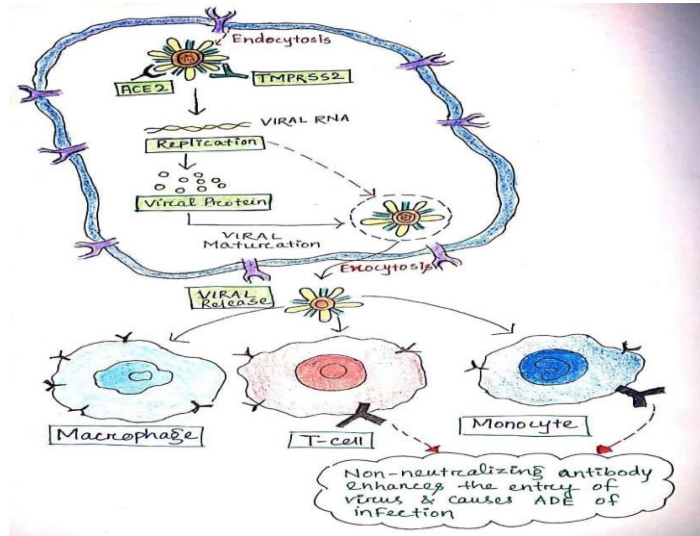 Endocytosis
ACE2
TMPRSS2
VIRAL RNA
Replication
Viral Protein
VIRAL
Maturation
Exocytosis
VIRAL
Release
Macrophage
T-cell
Monocyte
Non-neutralizing antibody
enhances the entry of
virus & causes ADE of
infection